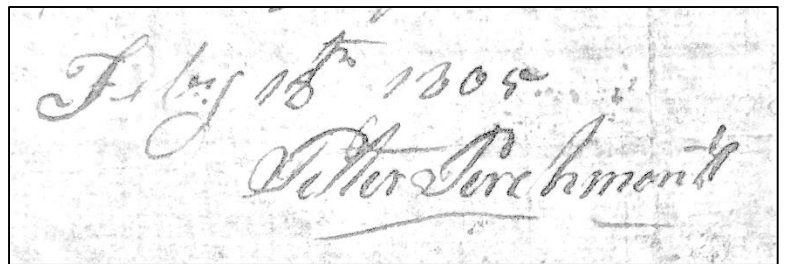 Feby 18th 1805
Peter Perchment